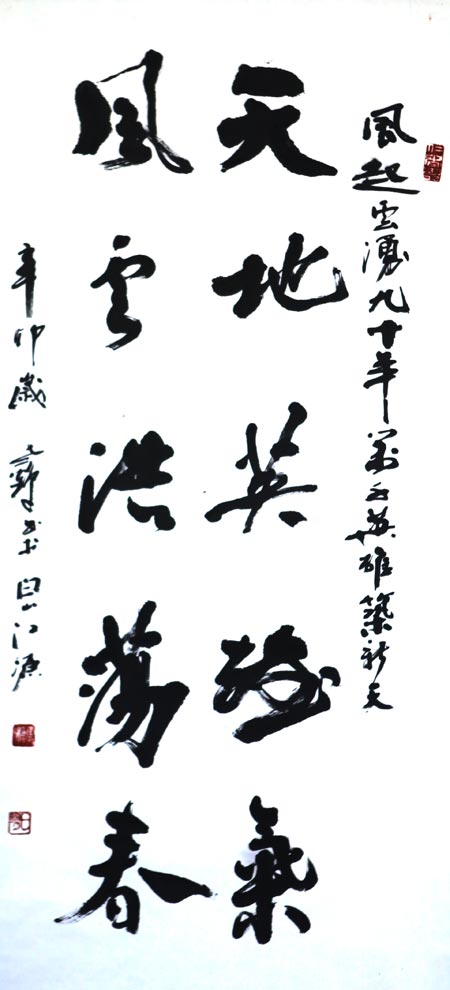 風起雲湧九十年萬千英雄築新天
天地英雄氣
風雲浩蕩春
辛卯歲
江源